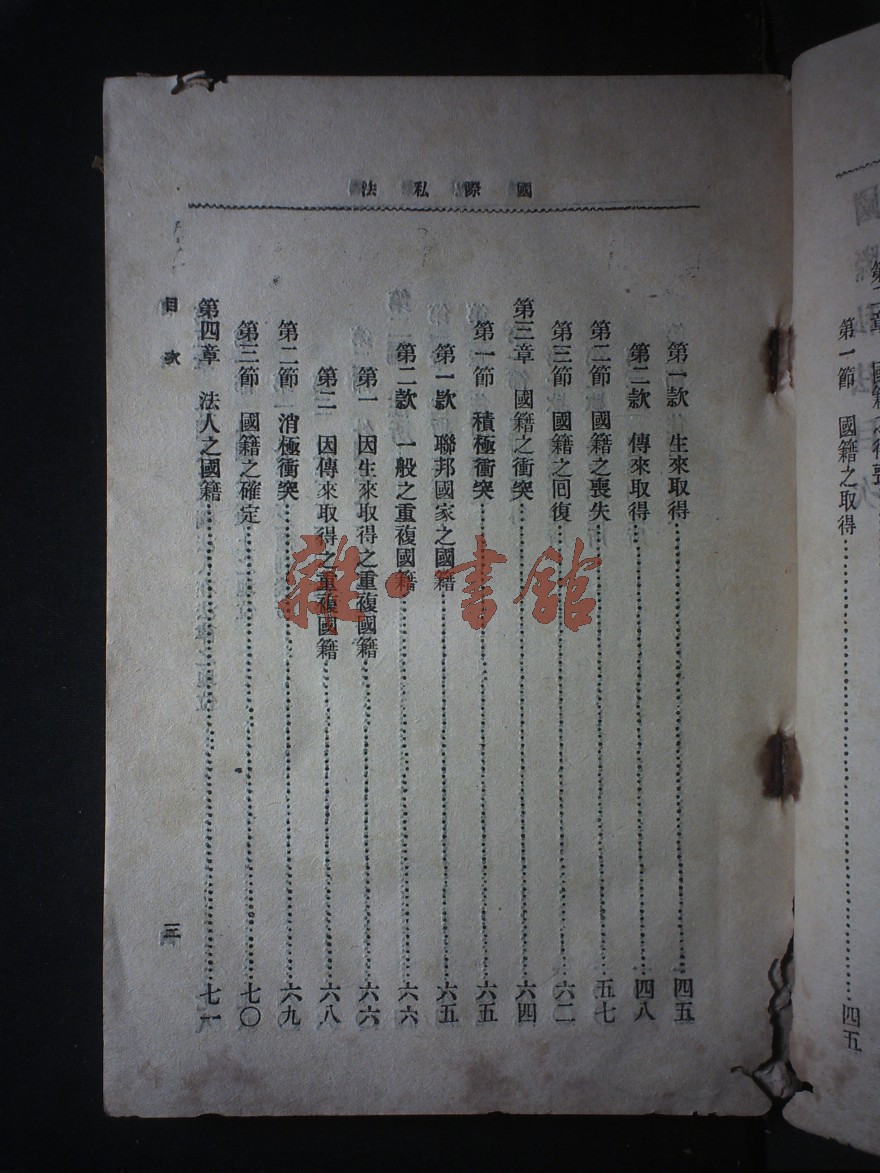 國際私法
第一節　國籍之取得……四五
第一款　生來取得……四五
第二款　傳來取得……四八
第二節　國籍之喪失……五七
第三節　國籍之囘復……六二
第三章　國籍之衝突……六四
第一節　積極衝突……六五
第一款　聯邦國家之國籍……六五
第二款　一般之重複國籍……六六
第一　因生來取得之重複國籍……六六
第二　因傳來取得之重複國籍……六八
第二節　消極衝突……六九
第三節　國籍之確定……七〇
第四章　法人之國籍……七一
目次
三
雜·書館